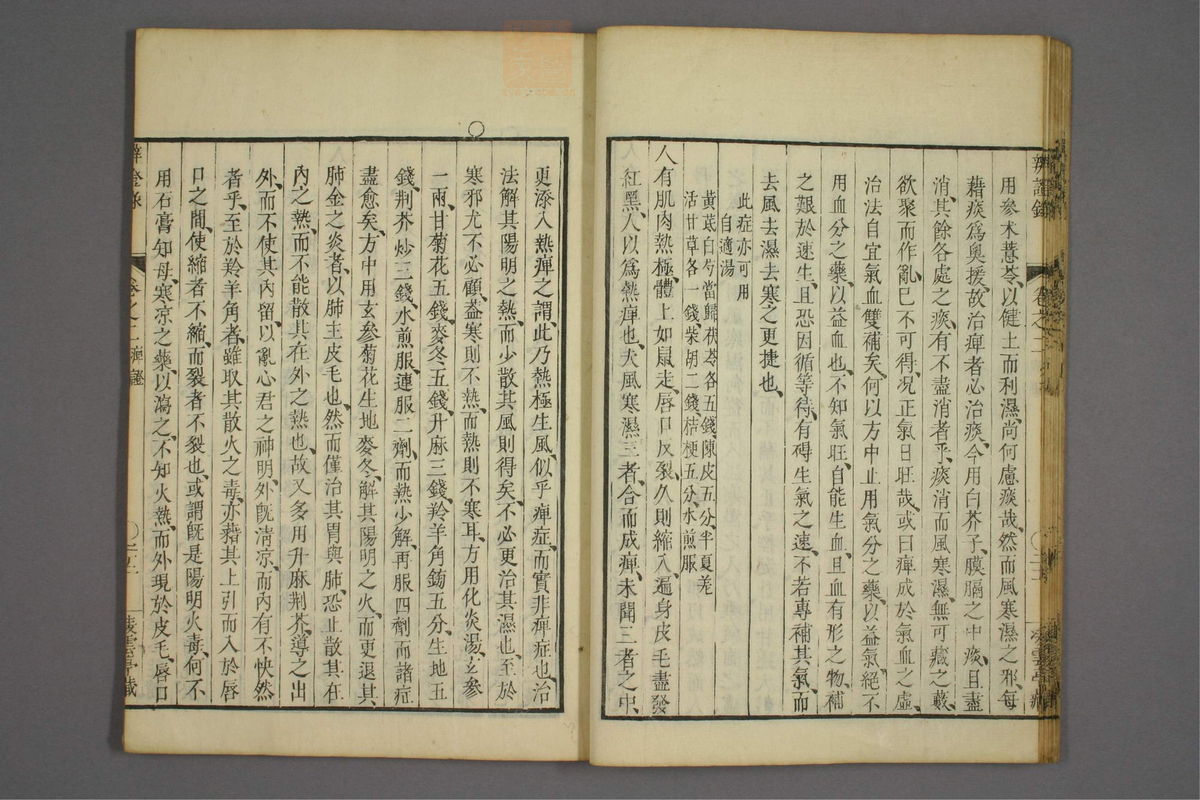 用參朮薏苓以健土而利濕尚何慮痰哉然而風寒濕之邪每
藉痰爲奥援故治痺者必治痰今用白芥子膜膈之中痰且盡
消其餘各處之痰有不盡消者乎痰消而風寒濕無可藏之藪
欲聚而作亂巳不可得况正氣日旺哉或曰痺成於氣血之虛
治法自宜氣血雙補矣何以方中止用氣分之藥以益氣絕不
用血分之藥以益血也不知氣旺自能生血且血有形之物補
之艱於速生且恐因循等待有碍生氣之速不若專補其氣而
去風去濕去寒之更捷也
此症亦可用
自適湯
黃芪白芍當歸茯苓各五錢陳皮五分半夏羌
活甘草各一錢柴胡二錢桔梗五分水煎服
人有肌肉熱極體上如鼠走唇口反裂久則縮入遍身皮毛盡發
紅黑人以爲熱痺也夫風寒濕三者合而成痺未聞三者之中
更添入熱痺之謂此乃熱極生風似乎痺症而實非痺症也治
法解其陽明之熱而少散其風則得矣不必更治其濕也至於
寒邪尤不必顧葢寒則不熱而熱則不寒耳方用化炎湯玄參
一兩甘菊花五錢麥冬五錢升麻三錢羚羊角鎊五分生地五
錢荆芥炒三錢水煎服連服二劑而熱少解再服四劑而諸症
盡愈矣方中用玄參菊花生地麥冬解其陽明之火而更退其
肺金之炎者以肺主皮毛也然而僅治其胃與肺恐止散其在
內之熱而不能散其在外之熱也故又多用升麻荆芥導之出
外而不使其內留以亂心君之神明外旣清涼而內有不快然
者乎至於羚羊角者雖取其散火之毒亦藉其上引而入於唇
口之間使縮者不縮而裂者不裂也或謂旣是陽明火毒何不
用石膏知母寒凉之藥以瀉之不知火熱而外現於皮毛唇口